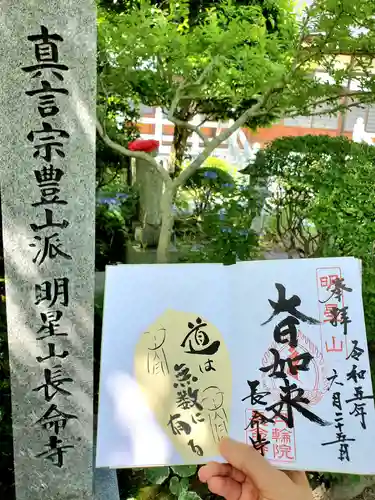 真言宗豊山派 明星山長命寺
奉拝
令和五年
六月二十五日
明星山
大日如来
長命寺
道は
無数に
有る